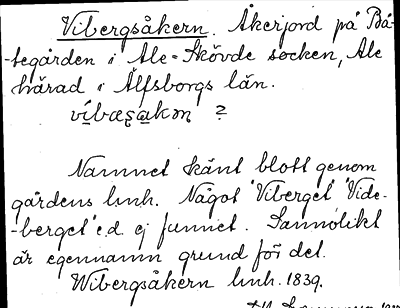 Vibergsåkern. Åkerjord på Bå-
-tegården i Ale-Skövde socken, Ale
härad i Älfsborgs län.
?
Namnet känt blott genom
gårdens lmh. Något 'Viberget' 'Vide-
-berget' e.d. ej funnet. Sannolikt
är egennamn grund för det.
Wibergsåkern lmh. 1839.